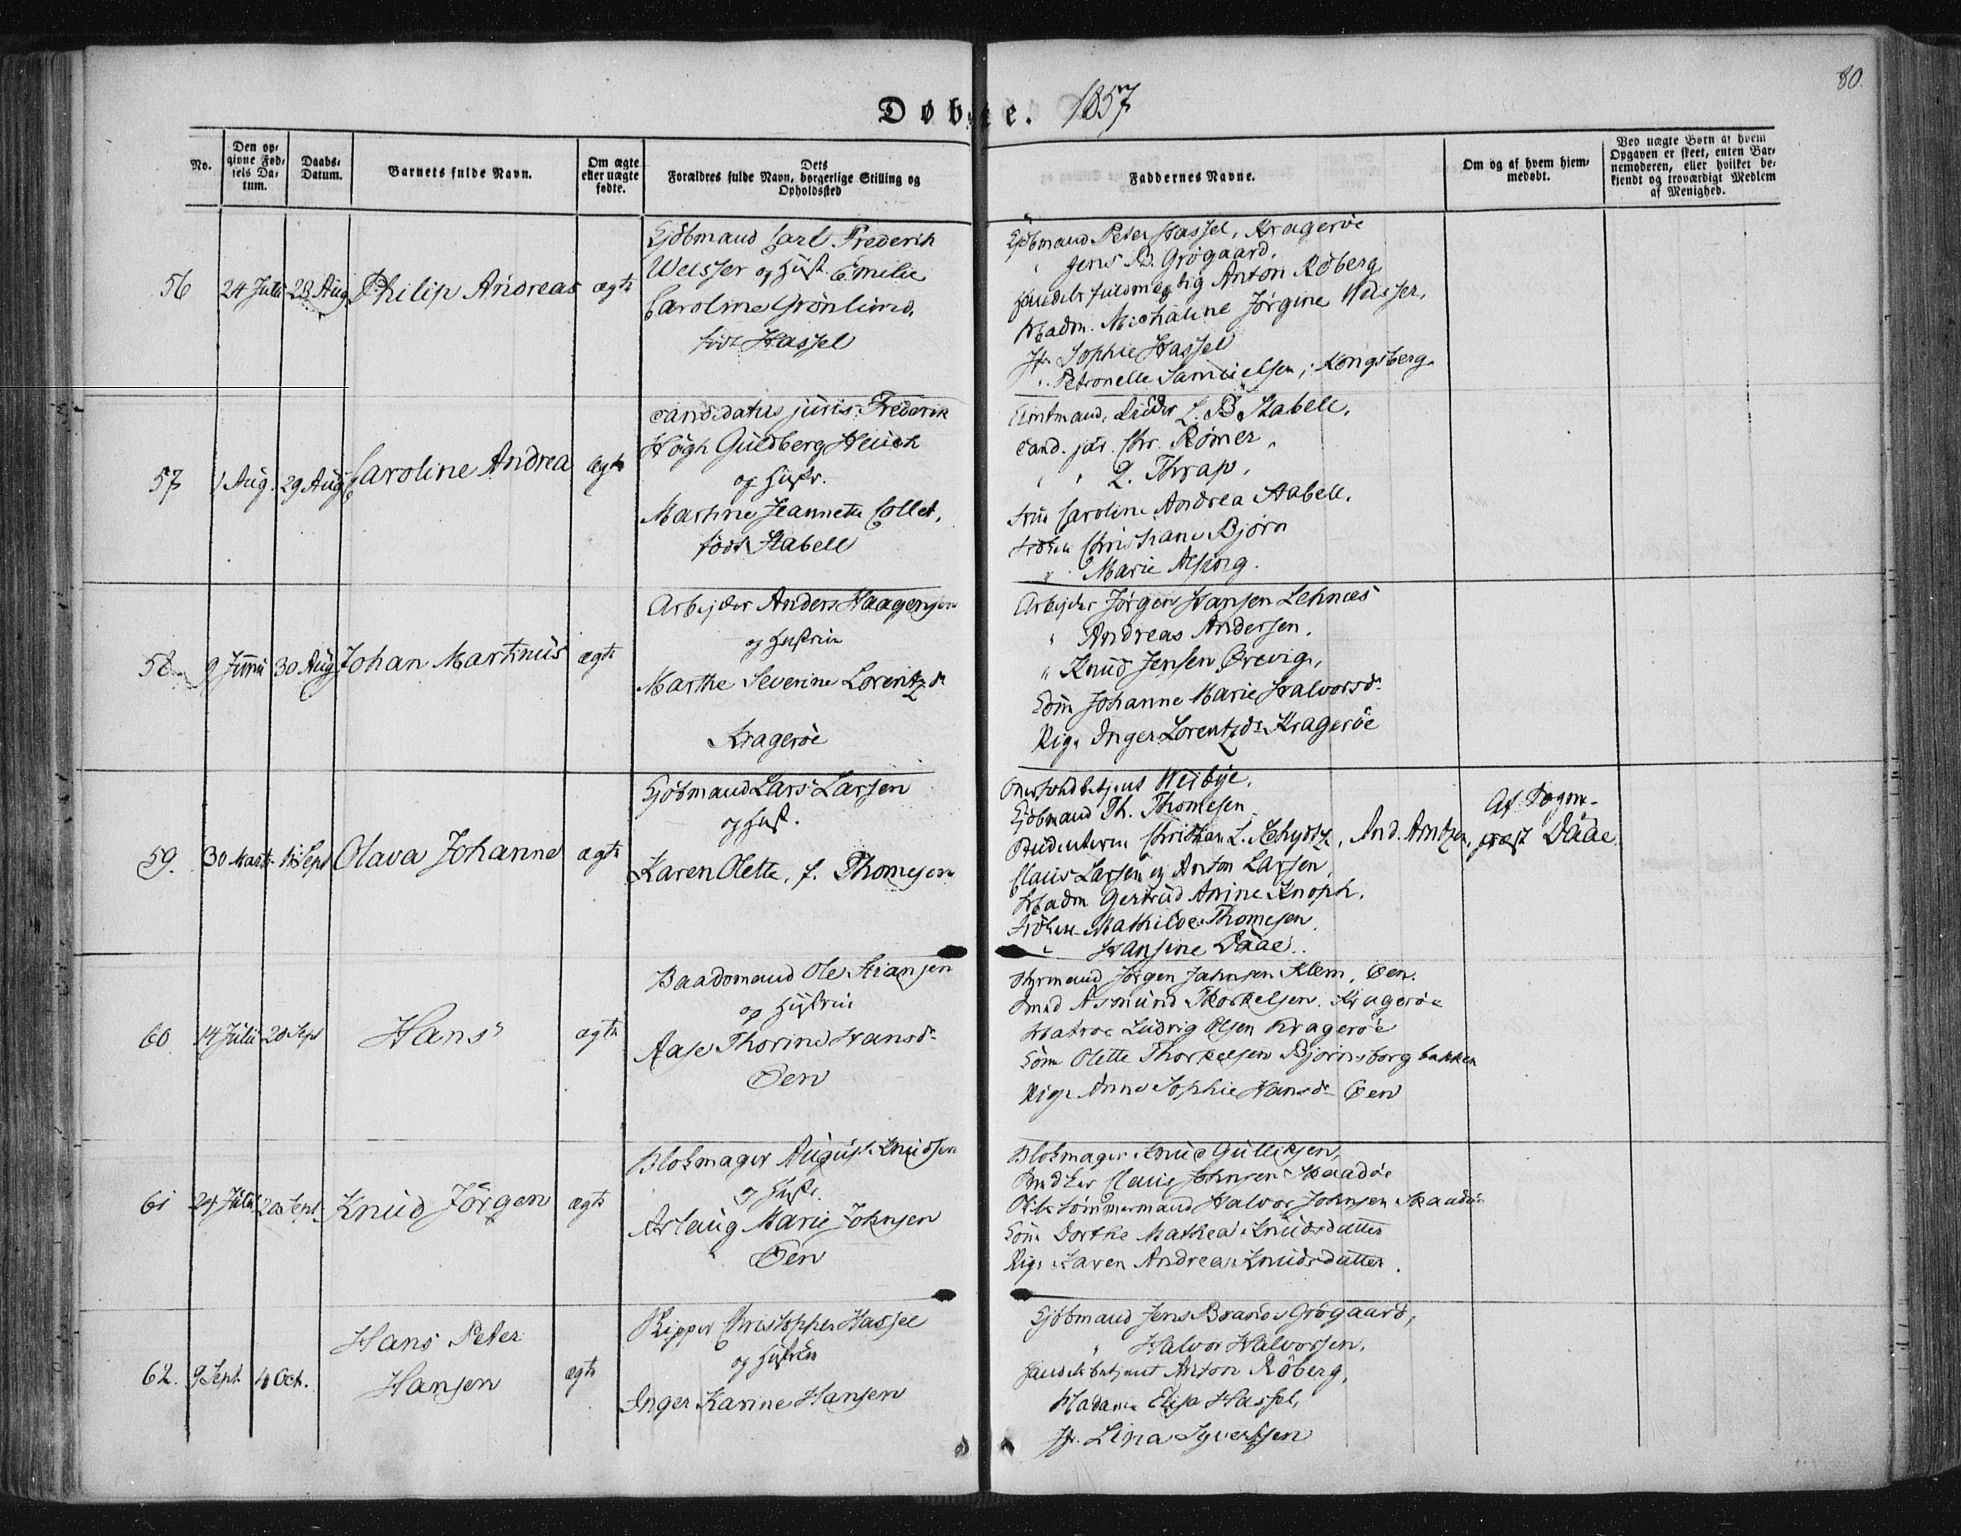 80.
Døbte. 1857
No.
Den opgivne Fødsels Datum.
Daabs-Datum.
Barnets fulde Navn.
Om ægte eller uægte fødte.
Dets Forældres fulde Navn, borgerlige Stilling og Opholdssted
Faddernes Navne.
Om og af hvem hjemmedøbt.
Ved uægte Børn af hvem Opgaven er skeet, enten Barnemoderen, eller hvilket bekjendt og troværdigt Medlem af Menighed.
56 24 Juli 28 Aug Philip Andreas ægte
Kjöbmand Carl Frederik
Weisser og Hust. Emilie
Caroline Grönlund,
född Hassel
Kjöbmand Peter Hassel, Kragerøe
" Jens B. Grögaard,
Handels fuldmægtig Anton Röberg
Madm. Michaline Jörgine Weisser,
Jfr. Sophie Hassel
" Petronelle Samuelsen, Kongsberg
57 1 Aug. 29 Aug Caroline Andrea ægte
Candidatus juris. Frederik
Høigh Guldberg Heuch
og Hustr.
Martine Jeannette Collet,
født Stabell
Amtmand, Ridder L. B. Stabell,
Cand. jur. Chr. Rømer,
" " Q. Thrap,
Frue Caroline Andrea Stabell,
Frøken Christiane Bjørn
" Marie
58 9 Juni 30 Aug Johan Martinus ægte
Arbejder Anders Haagensen
og Hustrue
Marthe Severine Lorentzdr
Kragerøe
Arbejder Jörgen Hansen Lehnæs
" Andreas Andersen,
" Knud Jensen Ørevig,
Kone Johanne Marie Halvorsdr
Pige Inger Lorentzdr Kragerøe
59. 30 Marts Sept Olava Johanne ægte
Kjöbmand Lars Larsen
og Hust.
Karen Olette, f. Thomesen
Weibye,
Kjöbmand Th. Thomesen
Studenterne Christian L. Schydtz, And. Arntzen,
Claus Larsen og Anton Larsen,
Madm Gertrud Anine Knoph,
Frøken Mathilde Thomesen
" Hansine Daae.
Af Sogne-
præst Daae.
60 14 Juli 20 Sept Hans ægte
Baadsmand Ole Stiansen
og Hustrue
Aase Thorine Hansdr
Øen
Styrmand Jörgen Jahnsen Klem, Øen.
Smed Asmund Thorkelsen, Kragerøe
Matros Ludvig Olsen Kragerøe
Kone Olette Thorkelsen Bjørnsborgbakken
Pige Anne Sophie Hansdr Øen
61 24 Juli 20 Sept. Knud Jörgen ægte
Blokmager August Knudsen
og Hustr.
Aslaug Marie Johnsen
Øen
Blokmager Knud Gulliksen,
Bødker Claus Johnsen Skaadøe
Skibstömmermand Halvor Johnsen Skaadøe
Kone Dorthe Mathea Knudsdatter
Pige Karen Andrea Knudsdatter
62. 9 Sept 4 Oct. Hans Peter
Hansen ægte
Skipper Christopher Hassel
og Hustrue
Inger Karine Hansen
Kjöbmand Jens Brandt Grögaard,
" Halvor Halvorsen,
Handelsbetjent Anton Röberg,
Madame Elisa Hassel,
Jfr. Lina Syvertsen